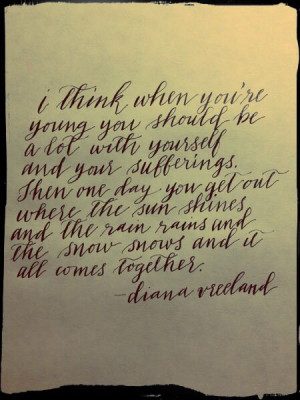 i think when you're
young you should be
a lot with yourself
and your sufferings.
Then one day you get out
where the sun shines
and the rain rains and
the snow snows and it
all comes together.
-diana vreeland